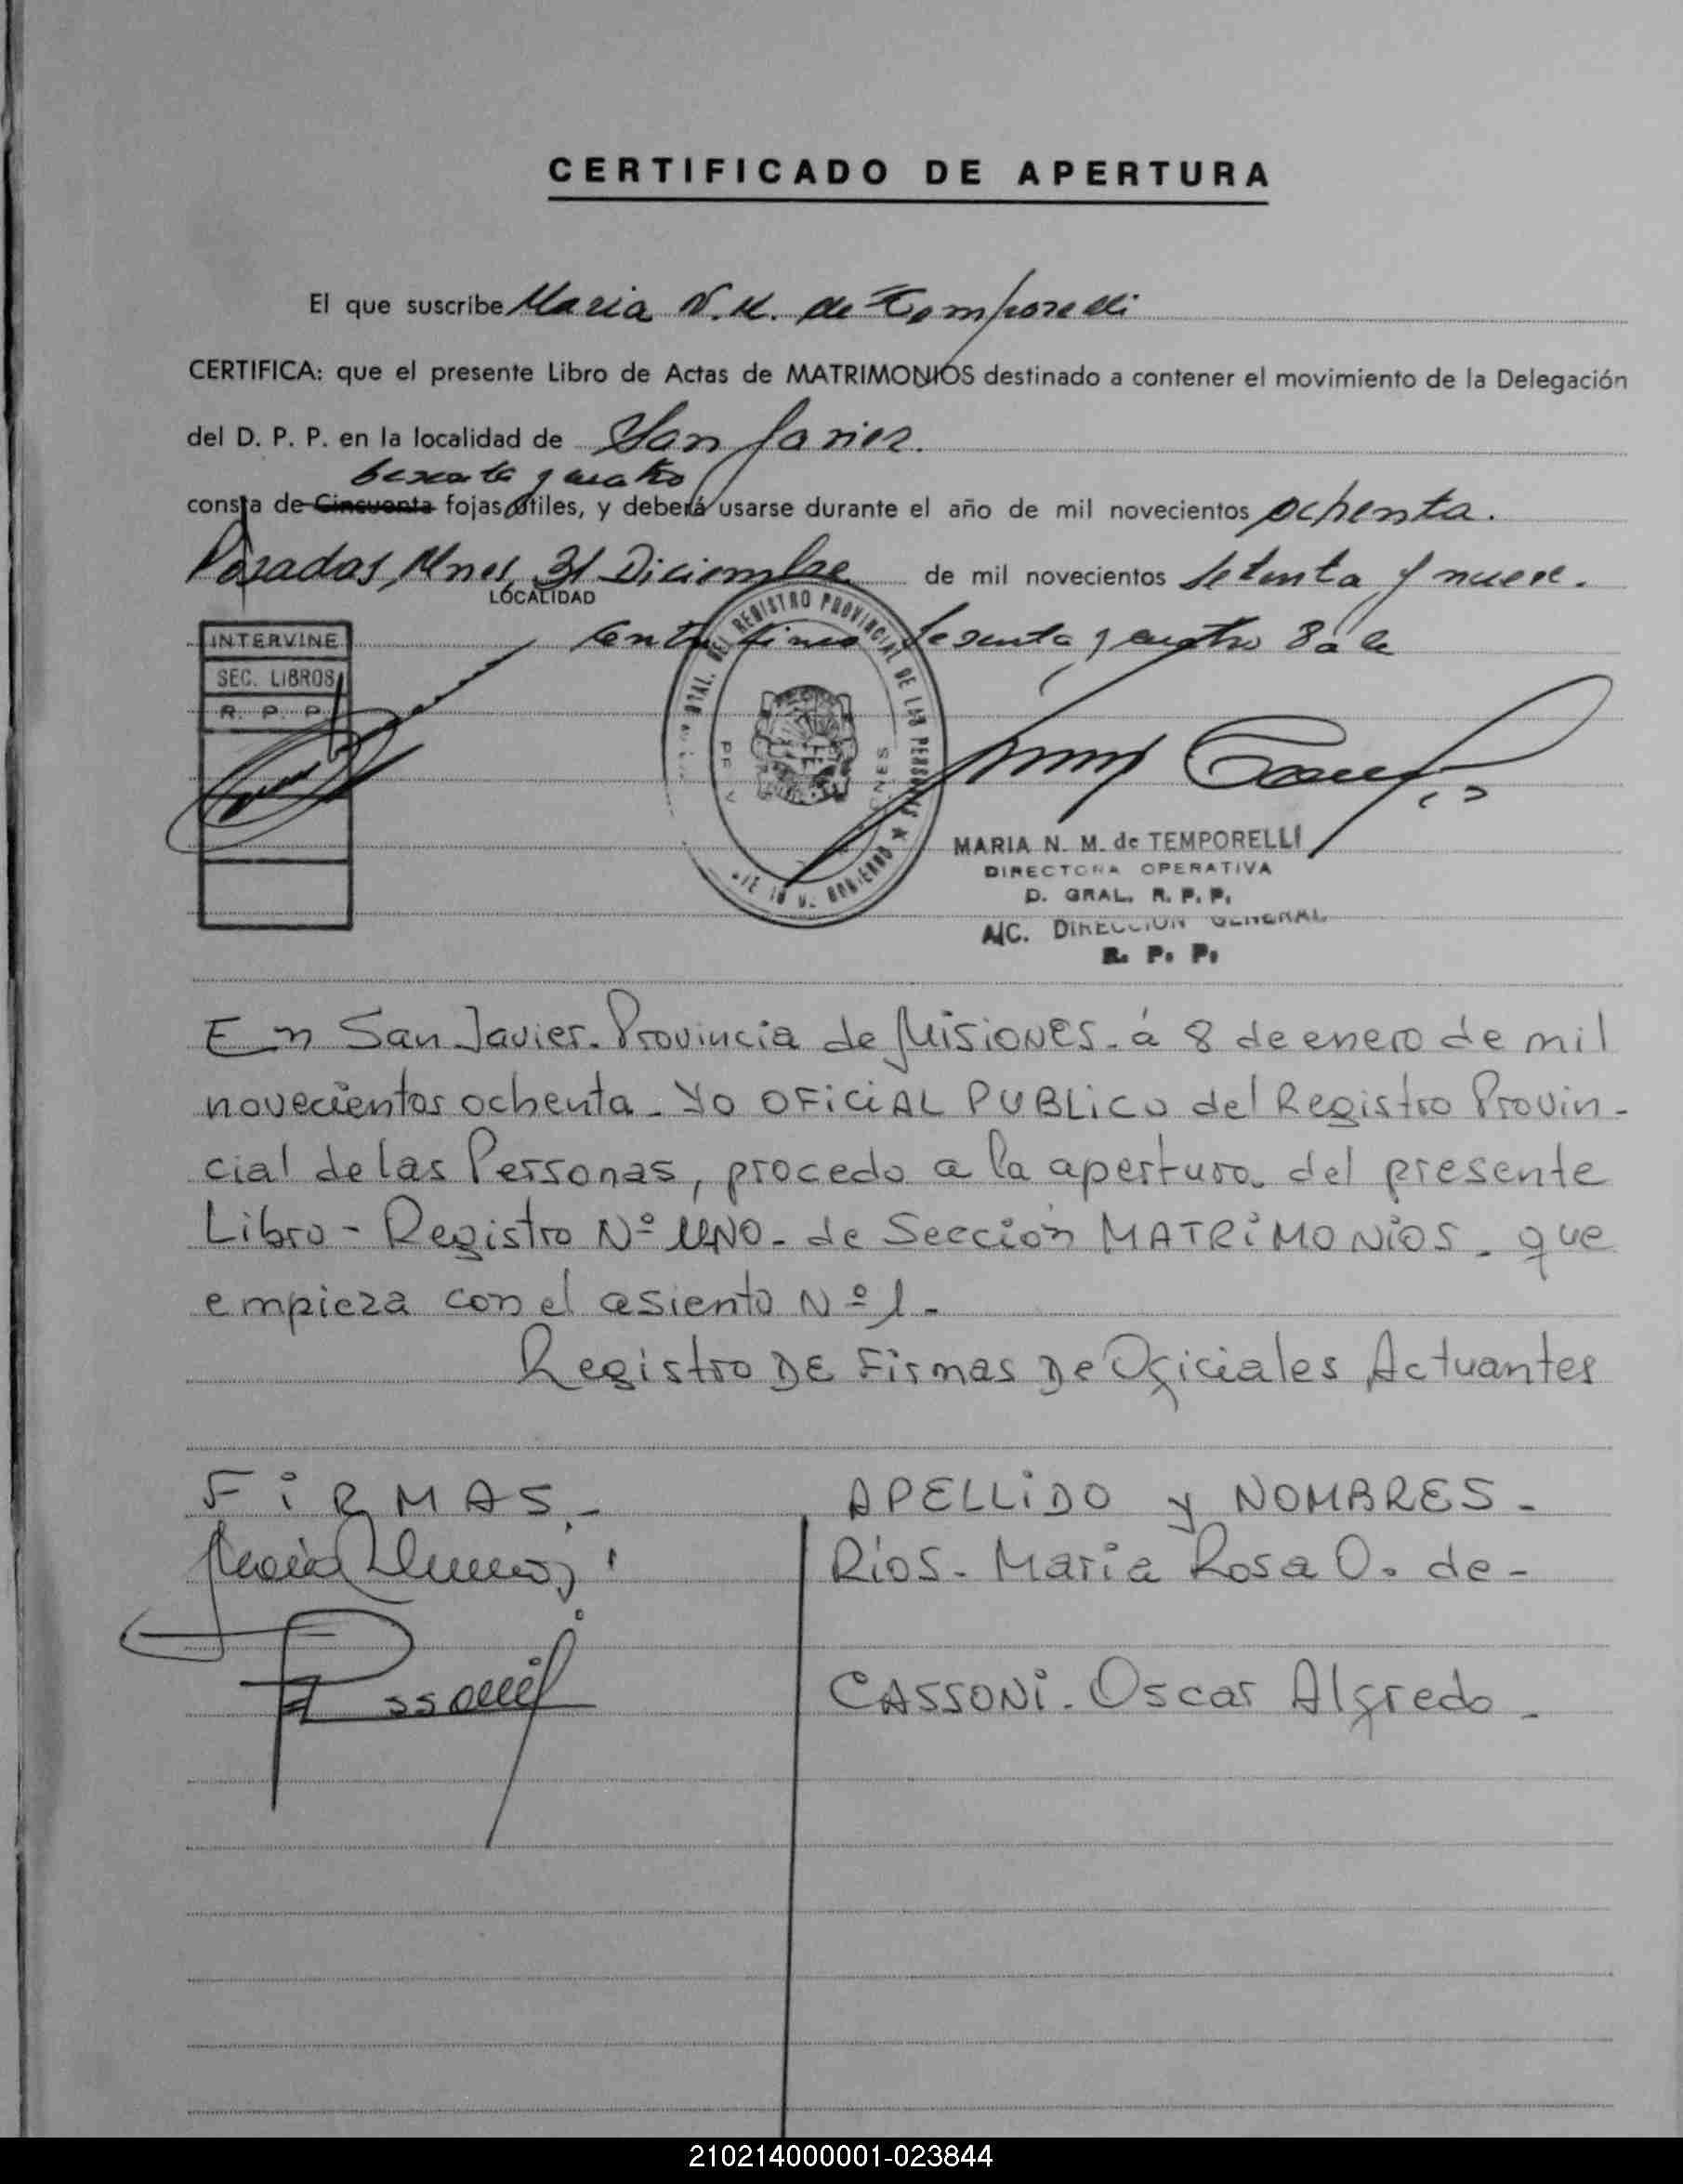 CERTIFICADO DE APERTURA
El que suscribe Maria N. M. de Temporelli
CERTIFICA: que el presente Libro de Actas de MATRIMONIOS destinado a contener el movimiento de la Delegación
del D. P. P. en la localidad de San Javier.
sesenta y cuatro
consta de Cincuenta fojas útiles, y deberá usarse durante el año de mil novecientos ochenta.
Posadas, Mnes, 31 Diciembre de mil novecientos setenta y nueve.
LOCALIDAD
Entre lineas sesenta y cuatro Vale
INTERVINE
SEC. LIBROS
R. P. P.
DEL REGISTRO PROVINCIAL DE LAS PERSONAS
MARIA N. M. de TEMPORELLI
DIRECTORA OPERATIVA
D. GRAL. R. P. P.
A/C. DIRECCION GENERAL
R. P. P.
En San Javier. Provincia de Misiones. á 8 de enero de mil
novecientos ochenta. Yo OFiCiAL PUBLiCO del Registro Provin-
cial de las Personas, procedo a la apertura del presente
Libro - Registro Nº UNO. de Sección MATRiMONiOS. que
empieza con el asiento Nº 1.
Registro DE Firmas De Oficiales Actuantes
FiRMAS.- APELLiDO y NOMBRES.
Ríos. Maria Rosa O. de-
CASSONi. Oscar Alfredo.
210214000001-023844